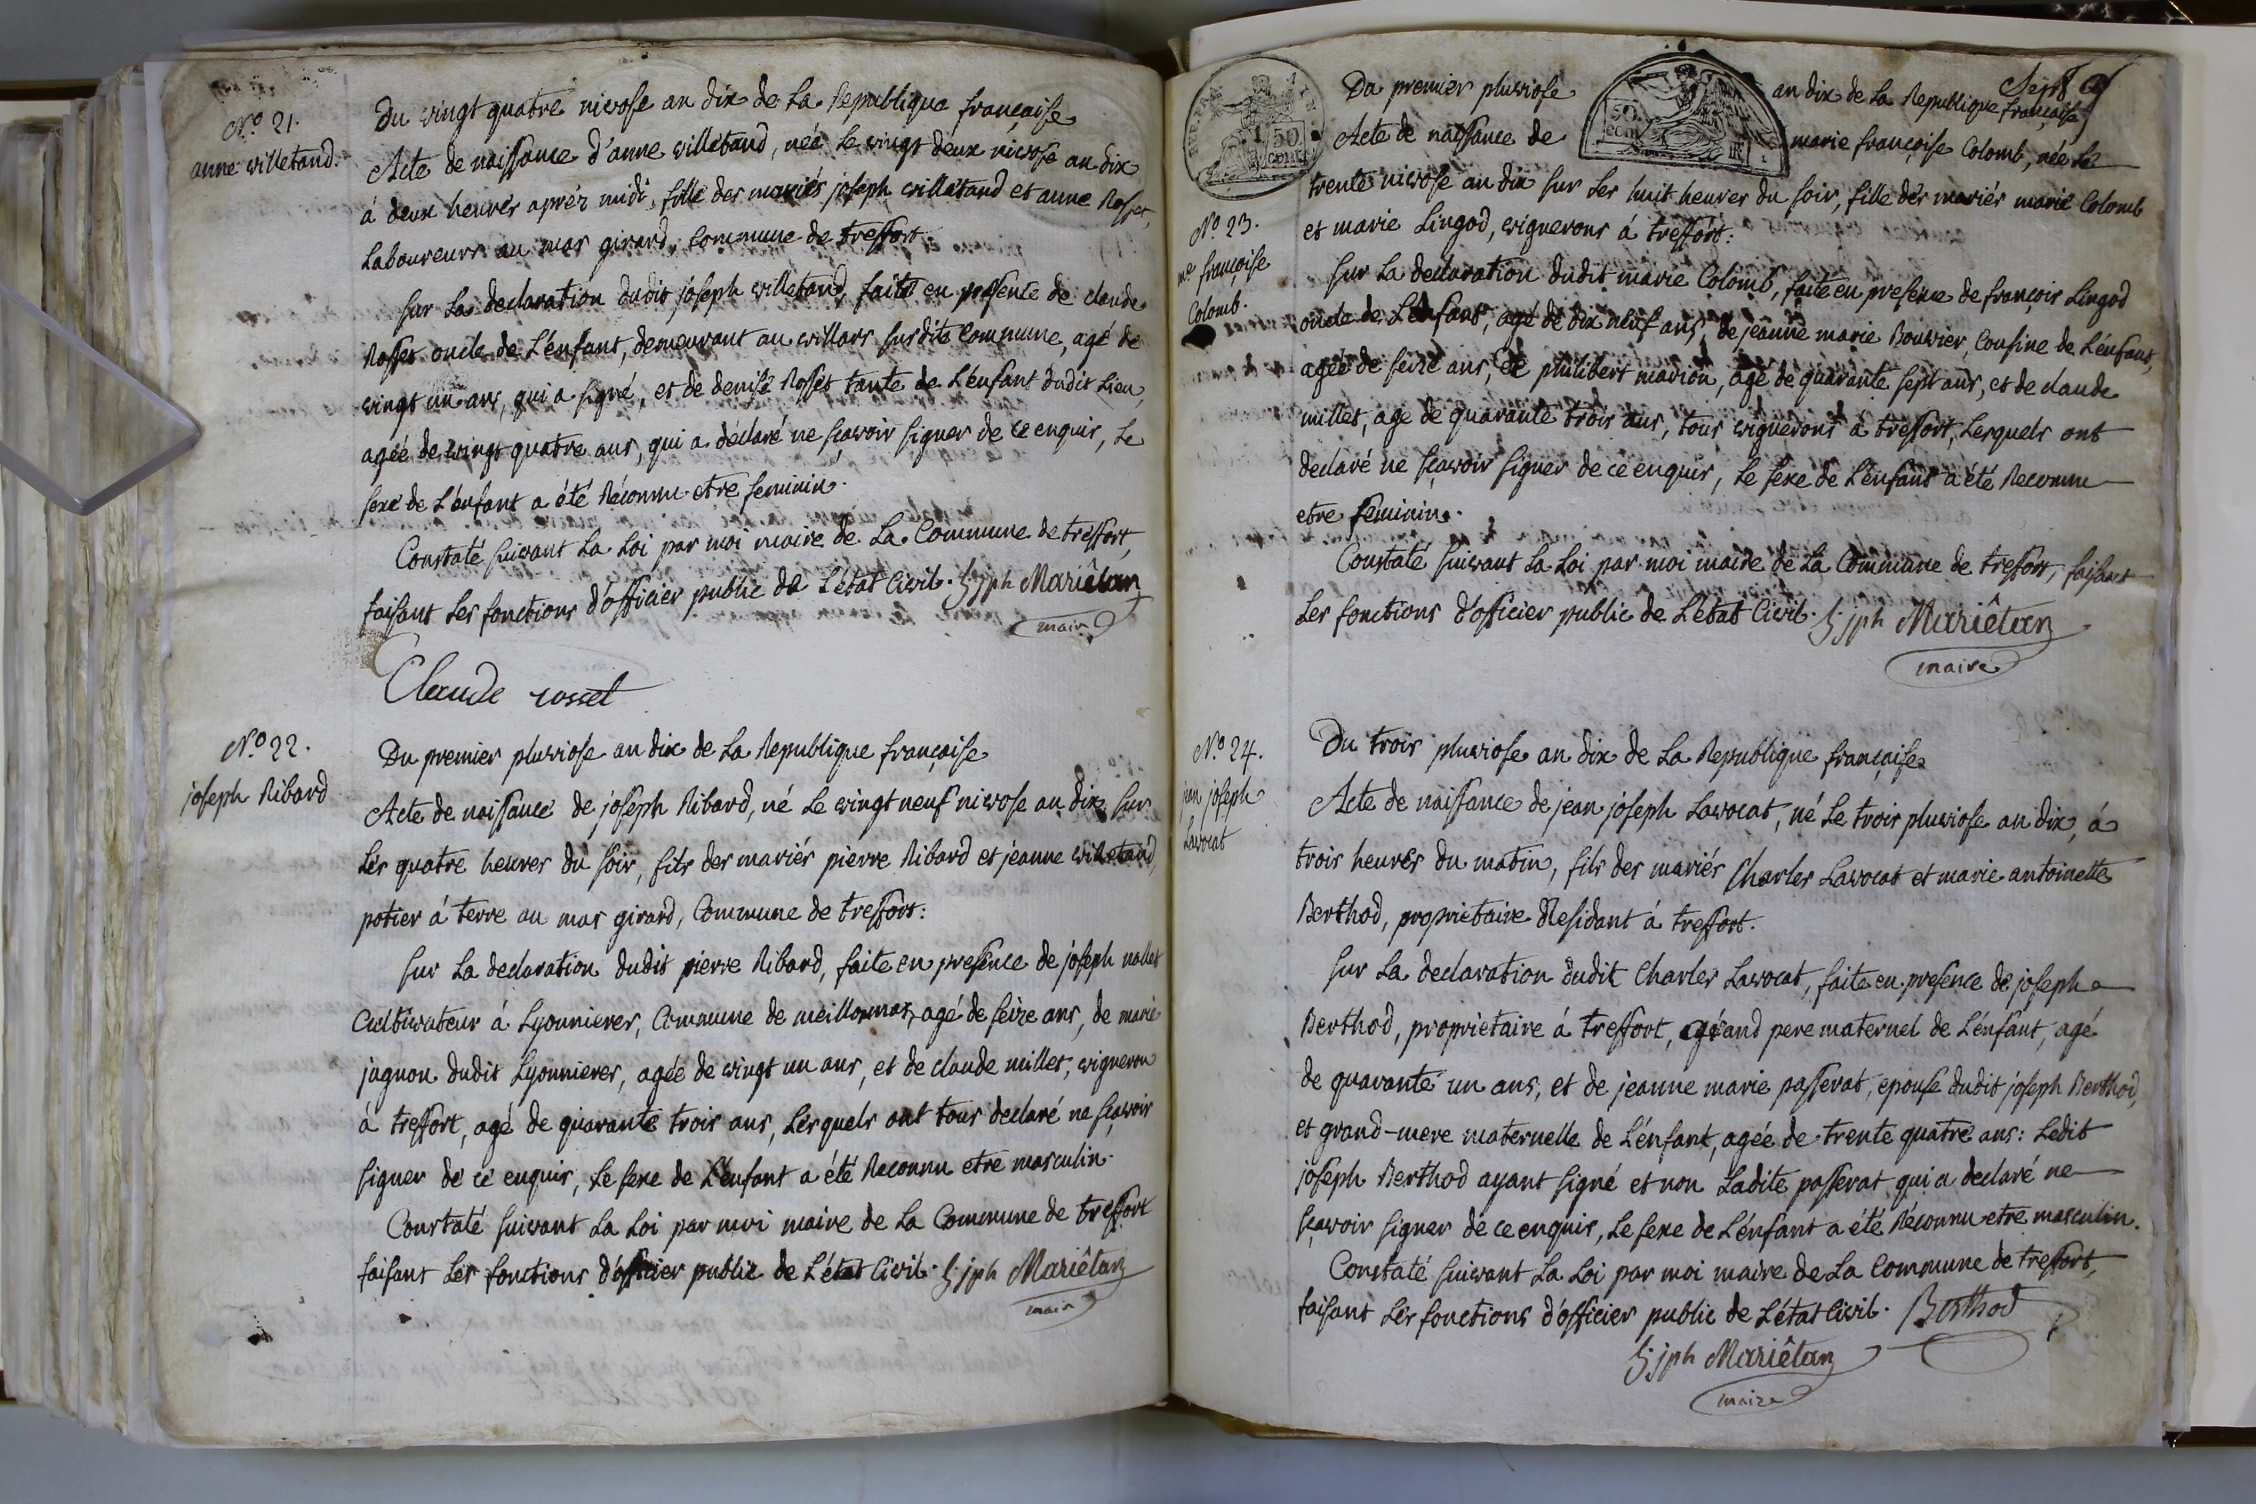 N.º 21.
anne villetand.
Du vingt quatre nivose an dix de La Republique françaíse
Acte de naissance d'anne villetand, née Le vingt deux nivose an dix
á deux heures aprés midi, fille des mariés joseph villetand et anne Rosset,
Laboureurs au mas girard, Commune de treffort.
sur La declaration dudit joseph villetand, faite en presence de claude
Rosset oncle de L'énfant, demeurant au villars susdite Commune, agé de
vingt un ans, qui a signé, et de denise Rosset tante de L'énfant dudit Lieu,
agée de vingt quatre ans, qui a déclaré ne sçavoir signer de ce enquis, Le
sexe de L'énfant a été Réconnu etre feminin.
Constaté suivant La Loi par moi maire de La Commune de treffort,
faisant Les fonctions d'officier public de L'état Civil. jph Mariêtan
maire
Claude rosset
N.º 22.
joseph Ribard
Du premier pluviose an dix de La Republique française
Acte de naissance de joseph Ribard, né Le vingt neuf nivose an dix sur
Les quatre heures du soir, fils des mariés pierre Ribard et jeanne villetand,
potier á terre au mas girard, Commune de treffort:
sur La declaration dudit pierre Ribard, faite en presence de joseph nallet
Cultivateur á Lyonnieres, Commune de meillonnas, agé de seize ans, de marie
jagnon dudit Lyonnieres, agée de vingt un ans, et de claude millet, vigneron
á treffort, agé de quarante trois ans, Lesquels ont tous declaré ne sçavoir
signer de ce enquis, Le sexe de L'énfant a été Reconnu etre masculin.
Constaté suivant La Loi par moi maire de La Commune de treffort
faisant Les fonctions d'officier public de L'état Civil. jph Mariêtan
maire
50
cent
50
cent
Sept
Du premier pluviose an dix de La Republique française
N.º 23.
me françoise
Colomb.
Acte de naissance de marie françoise Colomb, née Le
trente nivose an dix sur Les huit heures du soir, fille des mariés marie Colomb
et marie Lingod, vignerons á treffort:
sur La declaration dudit marie Colomb, faite en presence de françois Lingod
oncle de L'énfant, agé de dix neuf ans, de jeanne marie Bouvier, Cousine de L'énfant,
agée de seize ans, de philibert marion, agé de quarante sept ans, et de claude
millet, agé de quarante trois ans, tous vignerons á treffort, Lesquels ont
declaré ne sçavoir signer de ce enquis, Le sexe de L'énfant a été Reconnu
etre feminin.
Constaté suivant La Loi par moi maire de La Commune de treffort, faisant
Les fonctions d'officier public de L'état Civil. jph Mariêtan
maire
N.º 24.
jean joseph
Lavocat
Du trois pluviose an dix de La Republique française
Acte de naissance de jean joseph Lavocat, né Le trois pluviose an dix, á
trois heures du matin, fils des mariés Charles Lavocat et marie antoinette
Berthod, proprietaire Residant á treffort.
sur La declaration dudit Charles Lavocat, faite en presence de joseph
Berthod, proprietaire á treffort, grand pere maternel de L'énfant, agé
de quarante un ans, et de jeanne marie passerat, epouse dudit joseph Berthod,
et grand-mere maternelle de L'énfant, agée de trente quatre ans: Ledit
joseph Berthod ayant signé et non Ladite passerat qui a declaré ne
sçavoir signer de ce enquis, Le sexe de L'énfant a été Réconnu etre masculin.
Constaté suivant La Loi par moi maire de La Commune de treffort,
faisant Les fonctions d'officier public de L'état Civil. Berthod
jph Mariêtan
maire